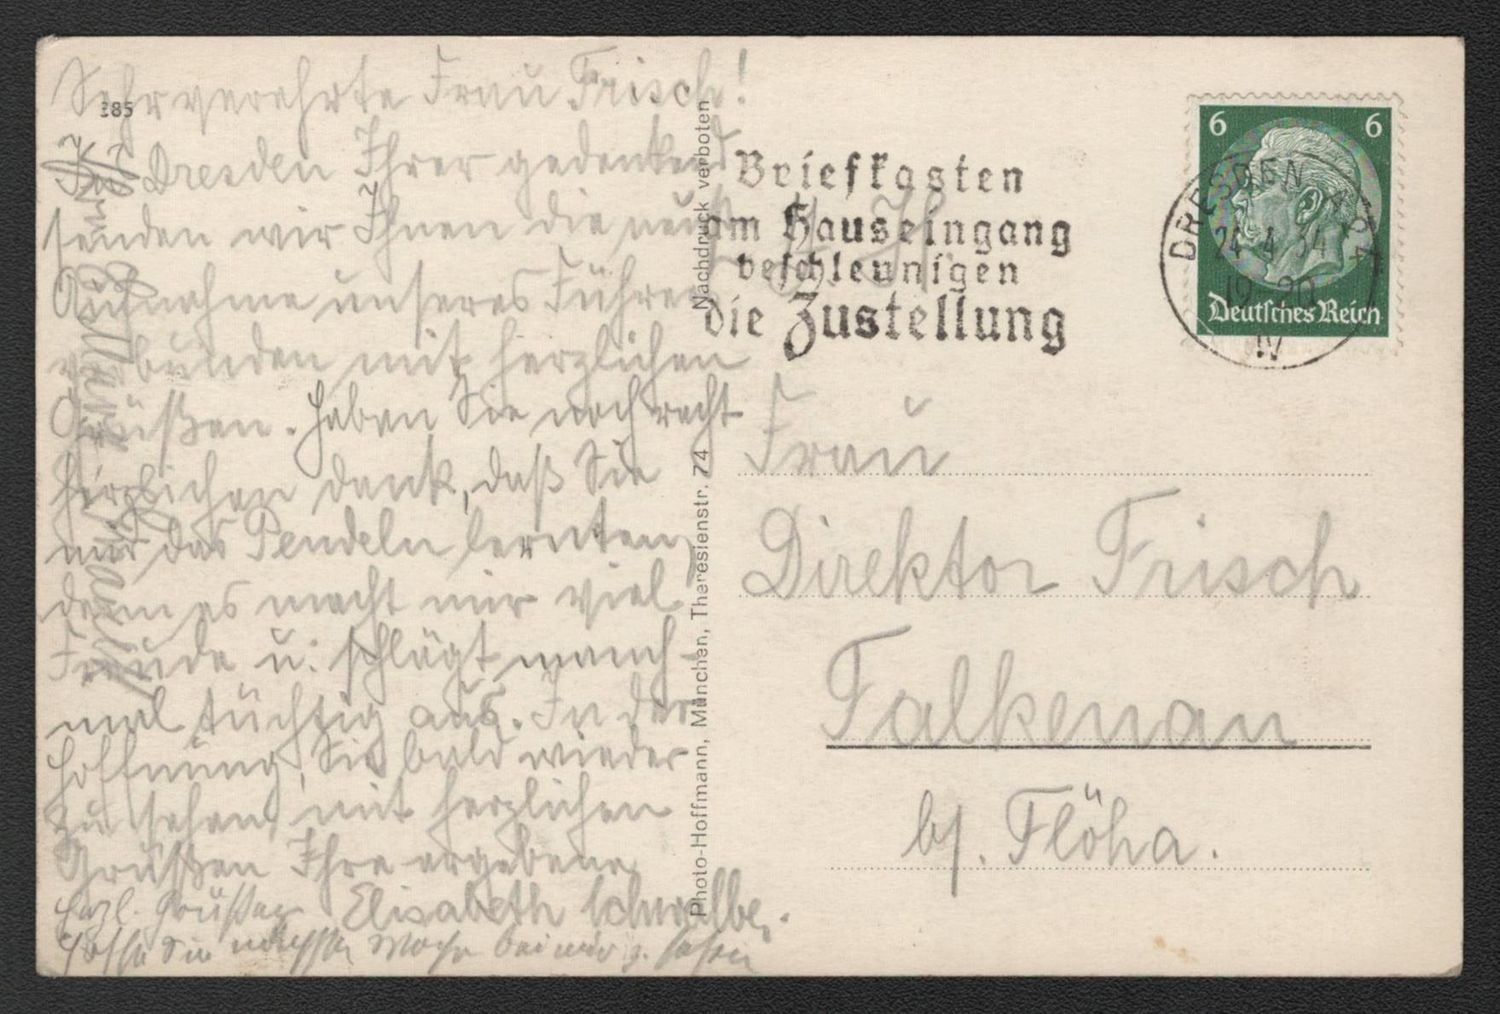 285
Sehr verehrte Frau Frisch!
In Dresden Ihrer gedenkend
senden wir Ihnen die neuste
Aufnahme unseres Führers
verbunden mit herzlichen
Grüßen. Haben Sie noch recht
herzlichen Dank, daß Sie
mir das Pendeln lernten,
denn es macht mir viel
Freude u. schlägt manch-
mal tüchtig aus. In der
Hoffnung, Sie bald wieder
zu sehen, mit herzlichen
Grüßen Ihre ergebene
Elisabeth Schwalbe.
Herzl. Grüßen
Hoffe Sie nächste Woche bei mir z. sehen
Photo-Hoffmann, München, Theresienstr. 74
Nachdruck verboten
Briefkasten
am Hauseingang
beschleunigen
die Zustellung
DRESDEN
24 4 34
IV
6 6
Deutsches Reich
Frau
Direktor Frisch
Falkenau
b/. Flöha.